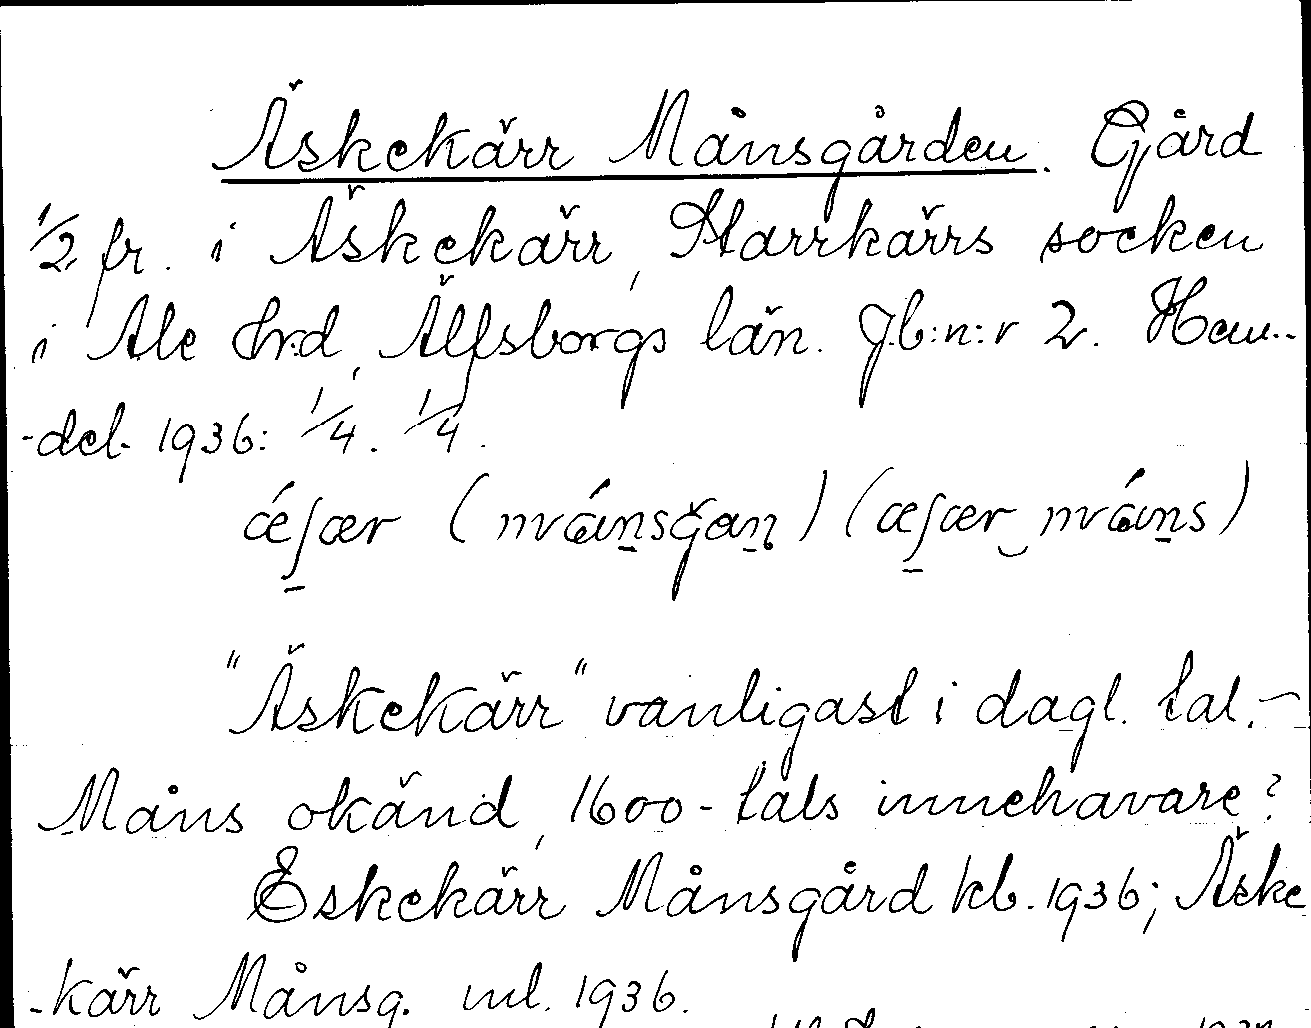 Äskekärr Månsgården. Gård
1/2 fr. i Äskekärr, Starrkärrs socken
i Ale hrd, Älfsborgs län. Jb:n:r 2. Hem-
-del 1936: 1/4. 1/4.
"Äskekärr" vanligast i dagl. tal. –
Måns okänd, 1600-tals innehavare?
Eskekärr Månsgård kb. 1936; Äske
-kärr Månsg. ml. 1936.